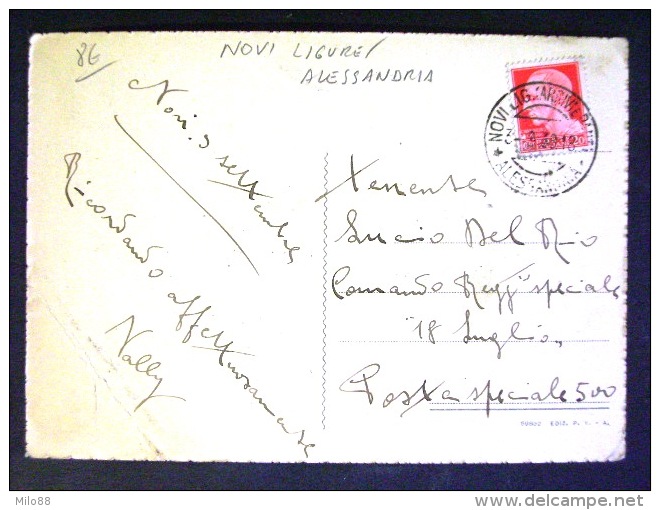 8€
NOVI LIGURE/
ALESSANDRIA
NOVI LIG.
ALESSANDRIA
Novi. 3 settembre
Ricordando affettuosamente
Nally
Tenente
Lucio Del Rio
Comando Regg. speciale
"18 Luglio"
Posta speciale 500
EDIZ. P. V. - A.
Milo88
delcampe.net